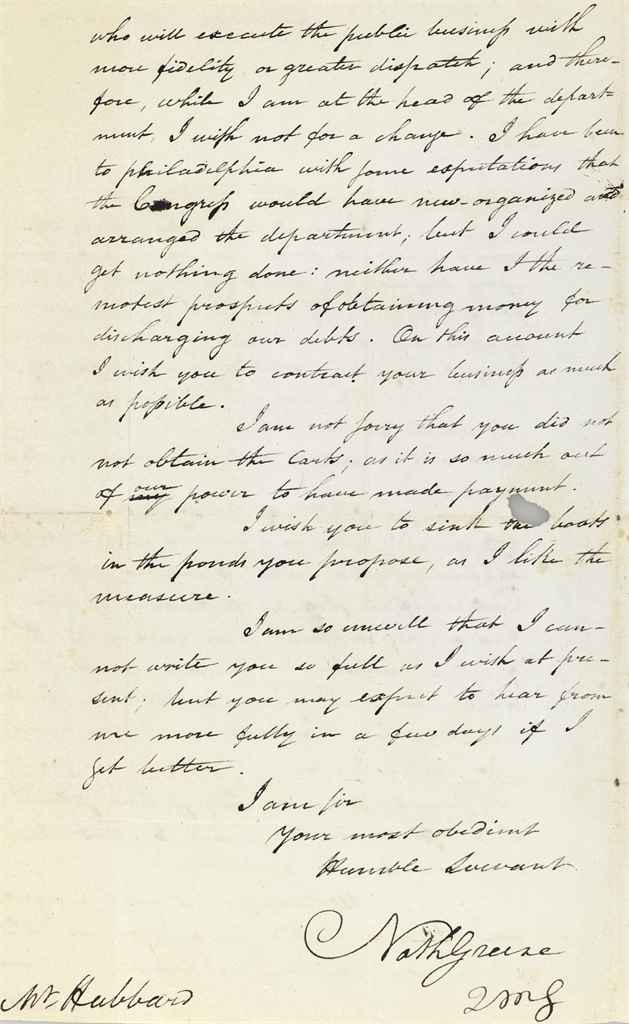 who will execute the public business with
more fidelity or greater dispatch; and there-
fore, while I am at the head of the depart-
ment, I wish not for a change. I have been
to philadelphia with some expectations that
the Congress would have new-organized and
arranged the department; but I could
get nothing done: neither have I the re-
motest prospects of obtaining money for
discharging our debts. On this account
I wish you to contract your business as much
as possible.
I am not sorry that you did not
not obtain the Carts; as it is so much out
of my our power to have made payment.
I wish you to sink the boats
in the ponds you propose, as I like the
measure.
I am so unwell that I can-
not write you so full as I wish at pre-
sent; but you may expect to hear from
me more fully in a few days if I
get better.
I am sir
Your most obedient
Humble Servant
Nath Greene
QMG
Mr Hubbard